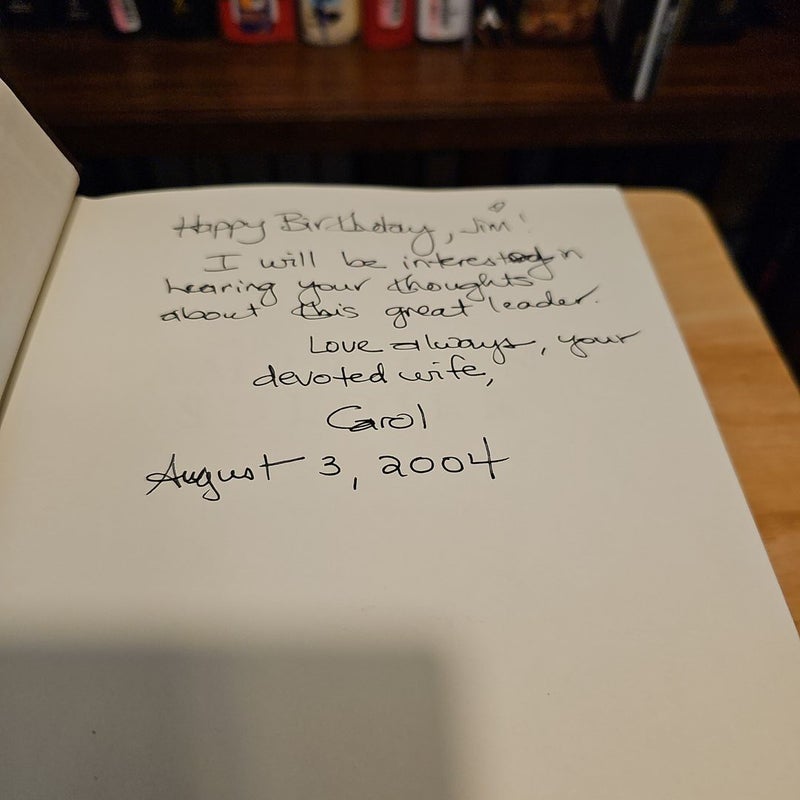 Happy Birthday, Jim!
I will be interested in
hearing your thoughts
about this great leader.
Love always, your
devoted wife,
Carol
August 3, 2004